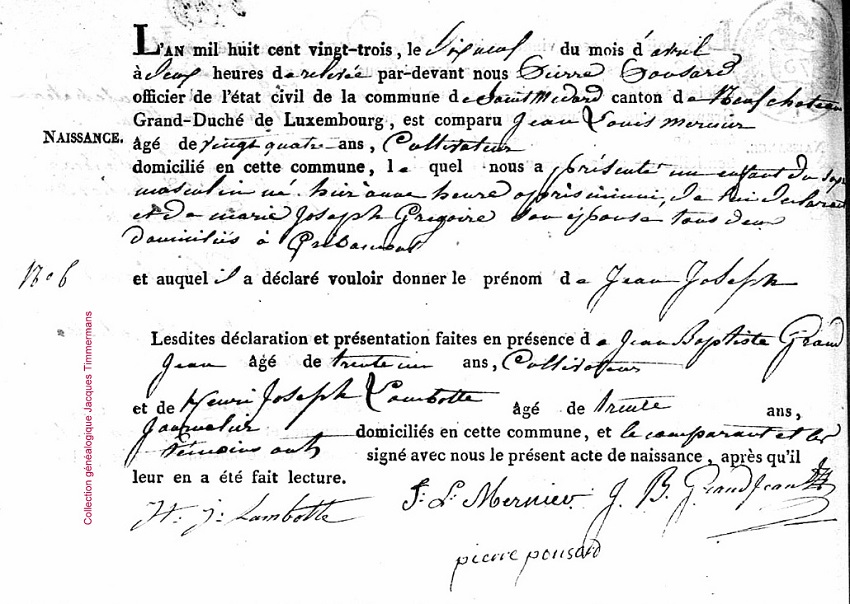 L'AN mil huit cent vingt-trois, le dix neuf du mois d'avril
à neuf heures de relevée par-devant nous Pierre Ponsard
officier de l'état civil de la commune de Saint Medard canton de Neufchateau
Grand-Duché de Luxembourg, est comparu Jean Louis Mernier
NAISSANCE.
âgé de vingt quatre ans, Cultivateur
domicilié en cette commune, le quel nous a présenté un enfant du sexe
masculin né hier à une heure après minui, de lui déclarant
et de marie Joseph Gregoire son épouse tous deux
domiciliés à
N° 6
et auquel il a déclaré vouloir donner le prénom de Jean Joseph
Lesdites déclaration et présentation faites en présence de Jean Baptiste Grand
Jean âgé de trente un ans, Cultivateur
et de Henri Joseph Lambotte âgé de trente ans,
Journalier domiciliés en cette commune, et le comparant et les
témoins ont signé avec nous le présent acte de naissance, après qu'il
leur en a été fait lecture.
H. J. Lambotte J. L. Mernier J. B. GrandJean
pierre ponsard
Collection généalogique Jacques Timmermans